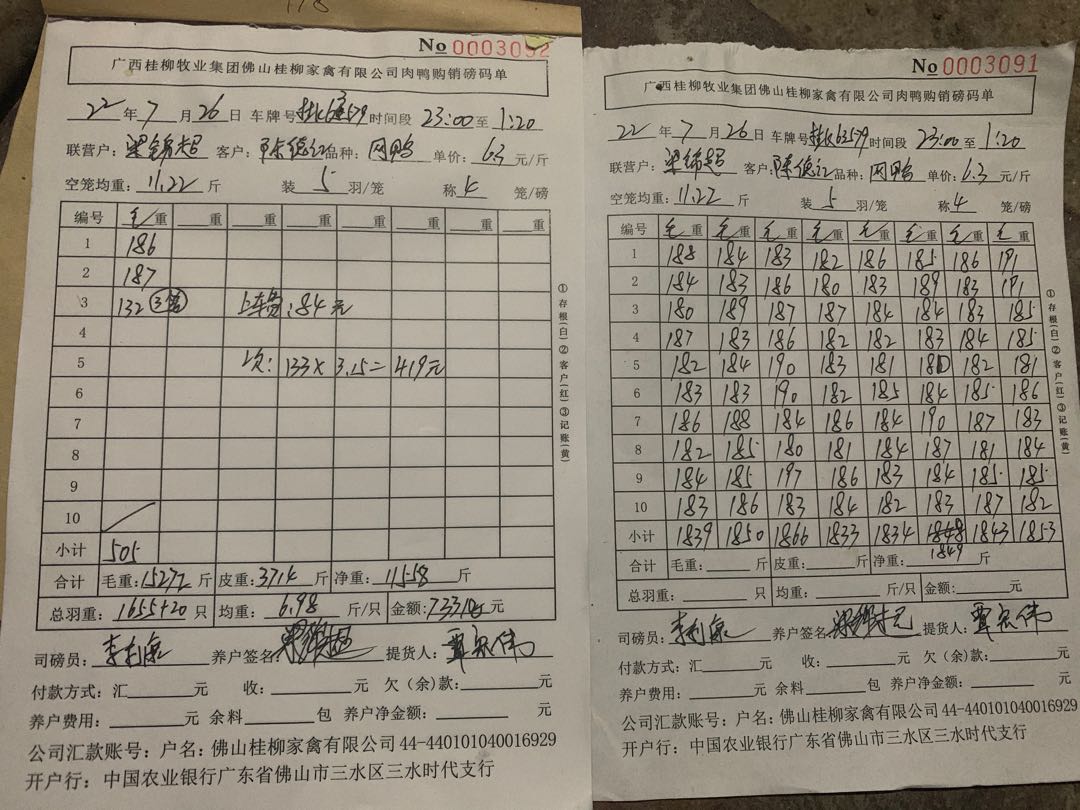 No 0003092
广西桂柳牧业集团佛山桂柳家禽有限公司肉鸭购销磅码单
22年7月26日 车牌号 时间段 23:00至1:20
联营户: 客户:陈德江 品种: 单价:6.3元/斤
空笼均重:11.22斤 装5羽/笼 称4笼/磅
编号 毛重 重 重 重 重 重 重 重
1 186
2 187
3 132 ③笼 上车员:184元
4
5 次: 133×3.15=419元
6
7
8
9
10
小计 505
合计 毛重:15272斤 皮重:3714斤 净重:11558斤
总羽重:1655+20只 均重:6.98斤/只 金额: 元
司磅员: 养户签名: 提货人:覃宏伟
付款方式:汇 元 收: 元 欠(余)款: 元
养户费用: 元 余料 包 养户净金额: 元
公司汇款账号:户名:佛山桂柳家禽有限公司44-440101040016929
开户行:中国农业银行广东省佛山市三水区三水时代支行
①存根(白)②客户(红)③记账(黄)
No 0003091
广西桂柳牧业集团佛山桂柳家禽有限公司肉鸭购销磅码单
22年7月26日 车牌号 时间段 23:00至1:20
联营户: 客户:陈德江 品种: 单价:6.3元/斤
空笼均重:11.22斤 装5羽/笼 称4笼/磅
编号 毛重 毛重 毛重 毛重 毛重 毛重 毛重 毛重
1 188 184 183 182 186 185 186 191
2 184 183 186 180 183 189 183 191
3 180 189 187 187 184 184 183 185
4 187 183 186 182 182 183 184 185
5 182 184 190 183 181 180 182 181
6 183 183 190 182 185 184 185 186
7 186 188 184 186 184 190 187 183
8 182 185 180 181 184 187 181 184
9 184 185 197 186 183 184 185 185
10 183 186 183 184 182 183 187 182
小计 1839 1850 1866 1833 1834 1849 1843 1853
合计 毛重: 斤 皮重: 斤 净重: 斤
总羽重: 只 均重: 斤/只 金额: 元
司磅员: 养户签名: 提货人:覃宏伟
付款方式:汇 元 收: 元 欠(余)款: 元
养户费用: 元 余料 包 养户净金额: 元
公司汇款账号:户名:佛山桂柳家禽有限公司44-440101040016929
开户行:中国农业银行广东省佛山市三水区三水时代支行
①存根(白)②客户(红)③记账(黄)